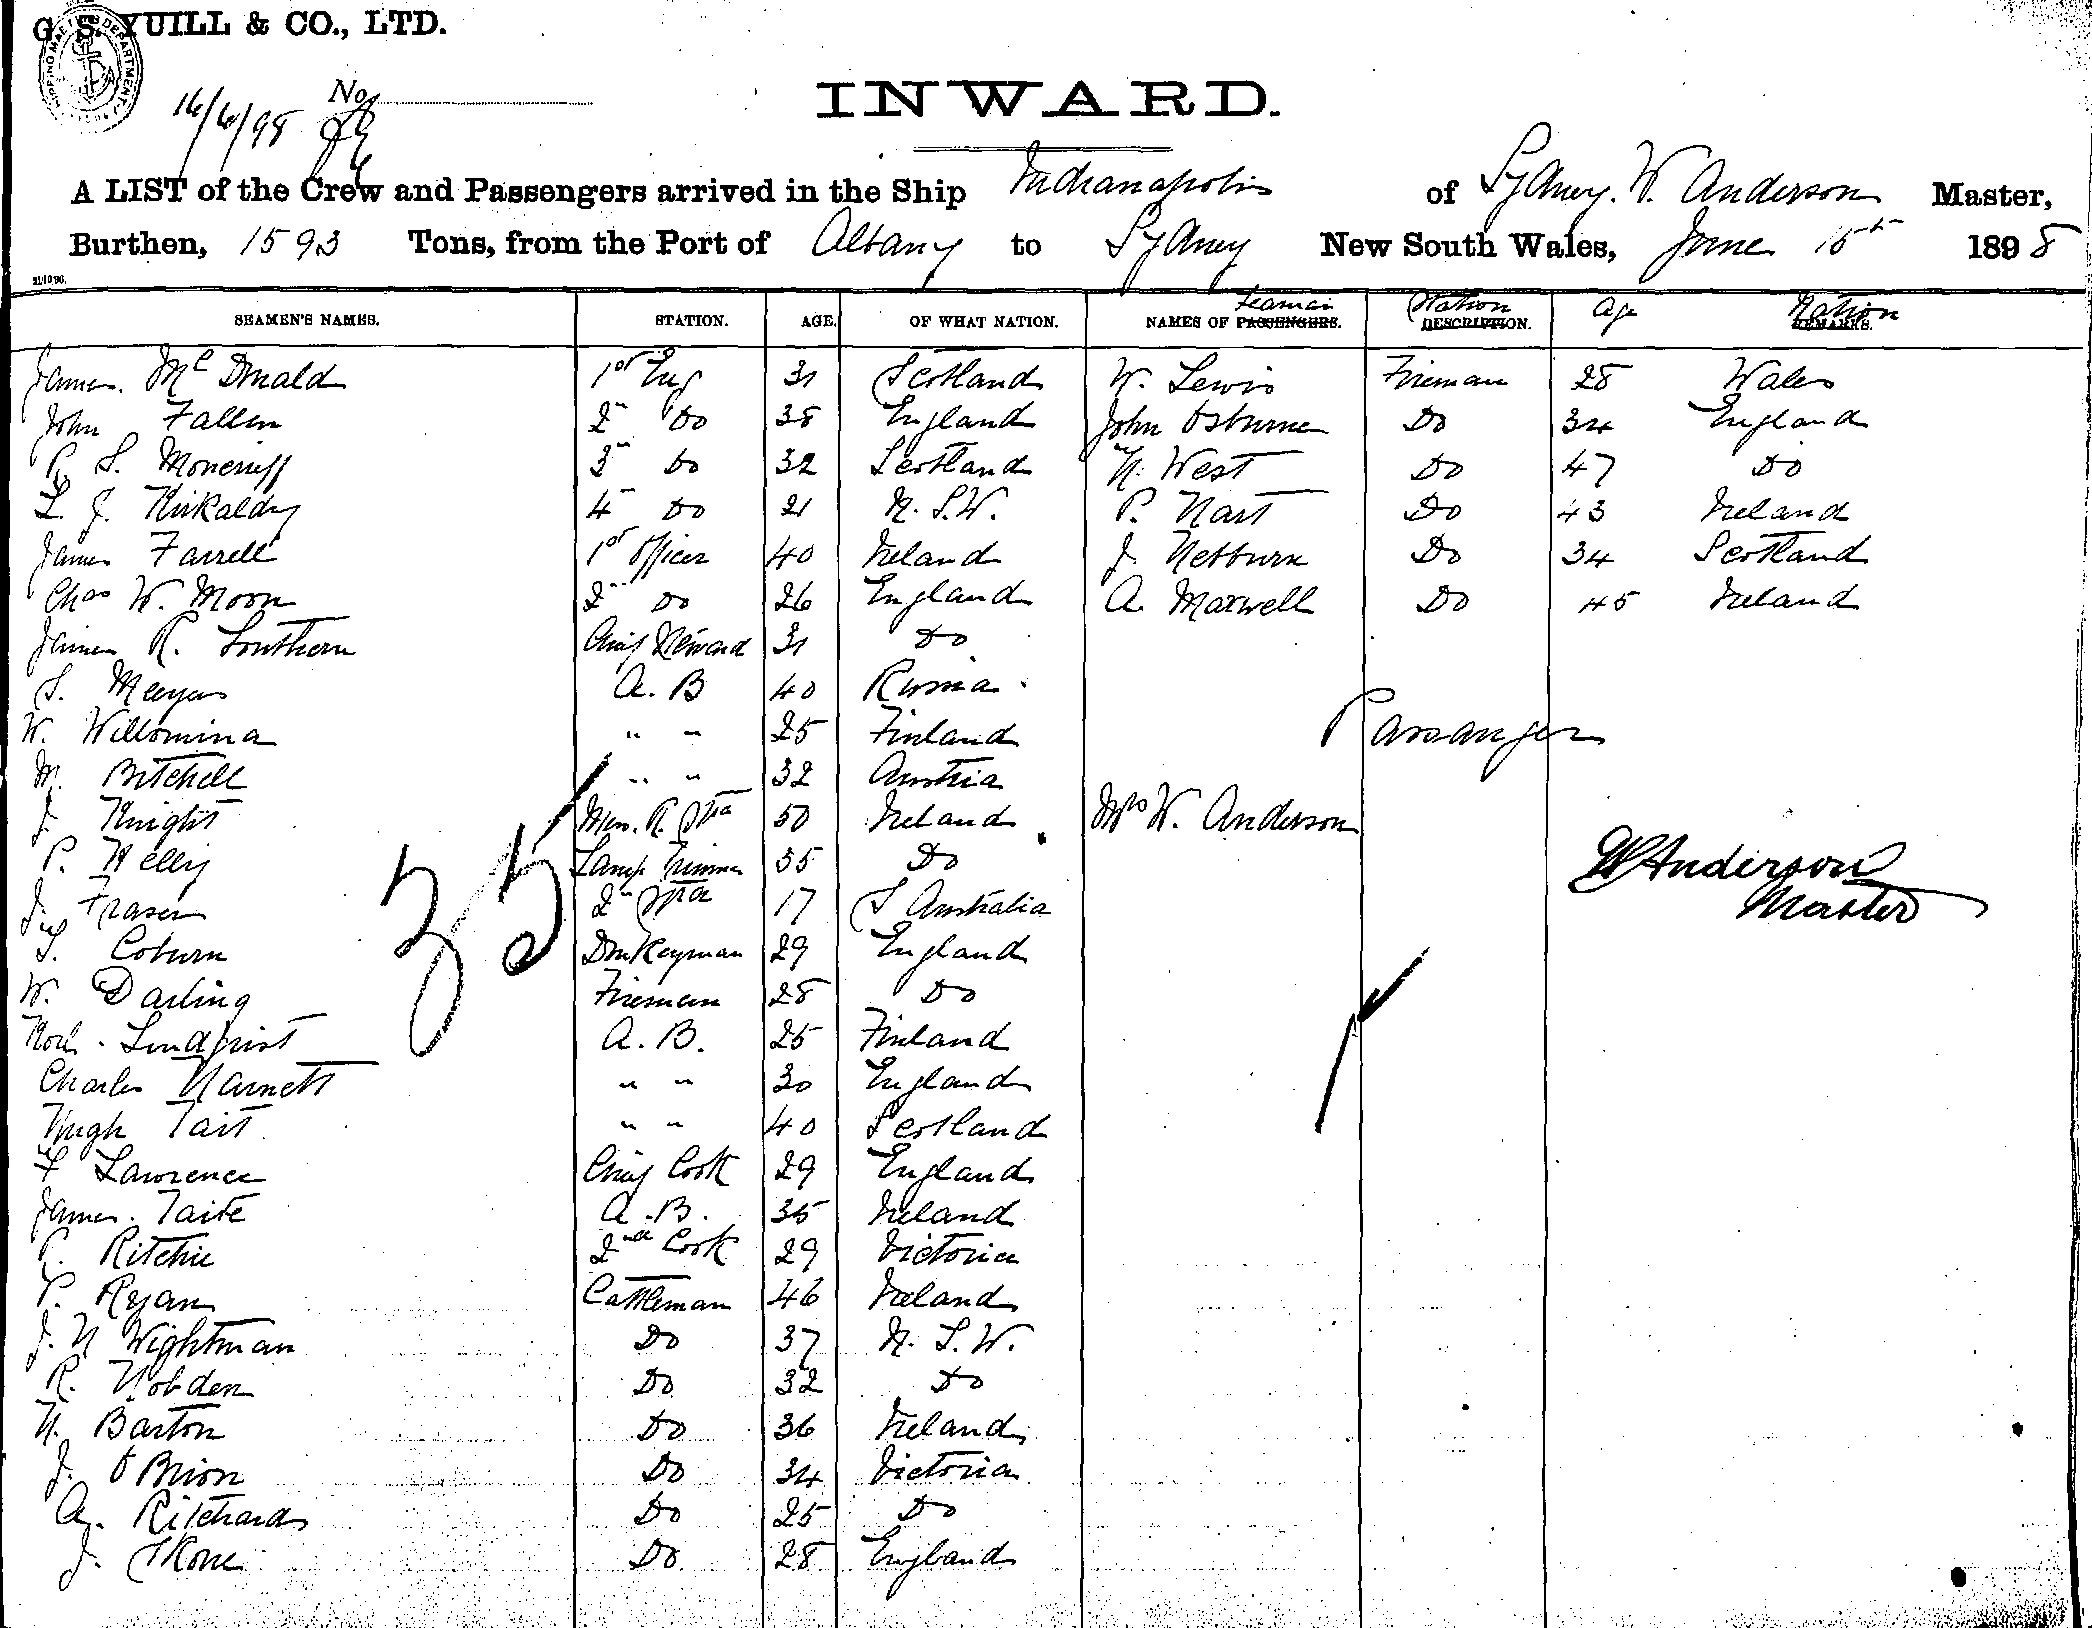 G. S. YUILL & CO., LTD.
SHIPPING MASTER'S DEPARTMENT
16/6/98 No
INWARD.
A LIST of the Crew and Passengers arrived in the Ship Indianapolis of Sydney. W. Anderson Master,
Burthen, 1593 Tons, from the Port of Albany to Sydney New South Wales, June 15th 1898
21/10/96.
SEAMEN'S NAMES. STATION. AGE. OF WHAT NATION. NAMES OF PASSENGERS. Seamen DESCRIPTION. Station Age REMARKS. Nation
James McDonald 1st Eng 31 Scotland W. Lewis Fireman 28 Wales
John Fallen 2nd Do 38 England John Osburne Do 34 England
P. S. Moncrieff 3rd Do 32 Scotland H. West Do 47 Do
L. J. Kirkaldy 4th Do 21 N. S. W. P. Hart Do 43 Ireland
James Farrell 1st Officer 40 Ireland J. Hepburn Do 34 Scotland
Chas W. Moon 2nd Do 26 England A. Maxwell Do 45 Ireland
James R. Southern Chief Steward 31 Do
S. Meyer A. B 40 Russia
W. Willomina " " 25 Finland Passanger
M. Bitchell " " 32 Austria
J. Knight Mess. R. Std 50 Ireland Mrs W. Anderson
P. Kelly Lamp Trimmer 35 Do W Anderson
J. Fraser 17 S Australia Master
35
T. Coburn Donkeyman 29 England
W. Darling Fireman 28 Do
Lindqvist A. B. 25 Finland
Charles Harnett " " 30 England
Hugh Tait " " 40 Scotland
F Lawrence Chief Cook 29 England
James Taite A. B. 35 Ireland
Ritchie 2nd Cook 29 Victoria
P. Ryan Cattleman 46 Ireland
J. H Wightman Do 37 N. S. W.
R. Hobden Do 32 Do
H. Barton Do 36 Ireland
J. O Brion Do 34 Victoria
A. Ritchards Do 25 Do
J. Skone Do 28 England